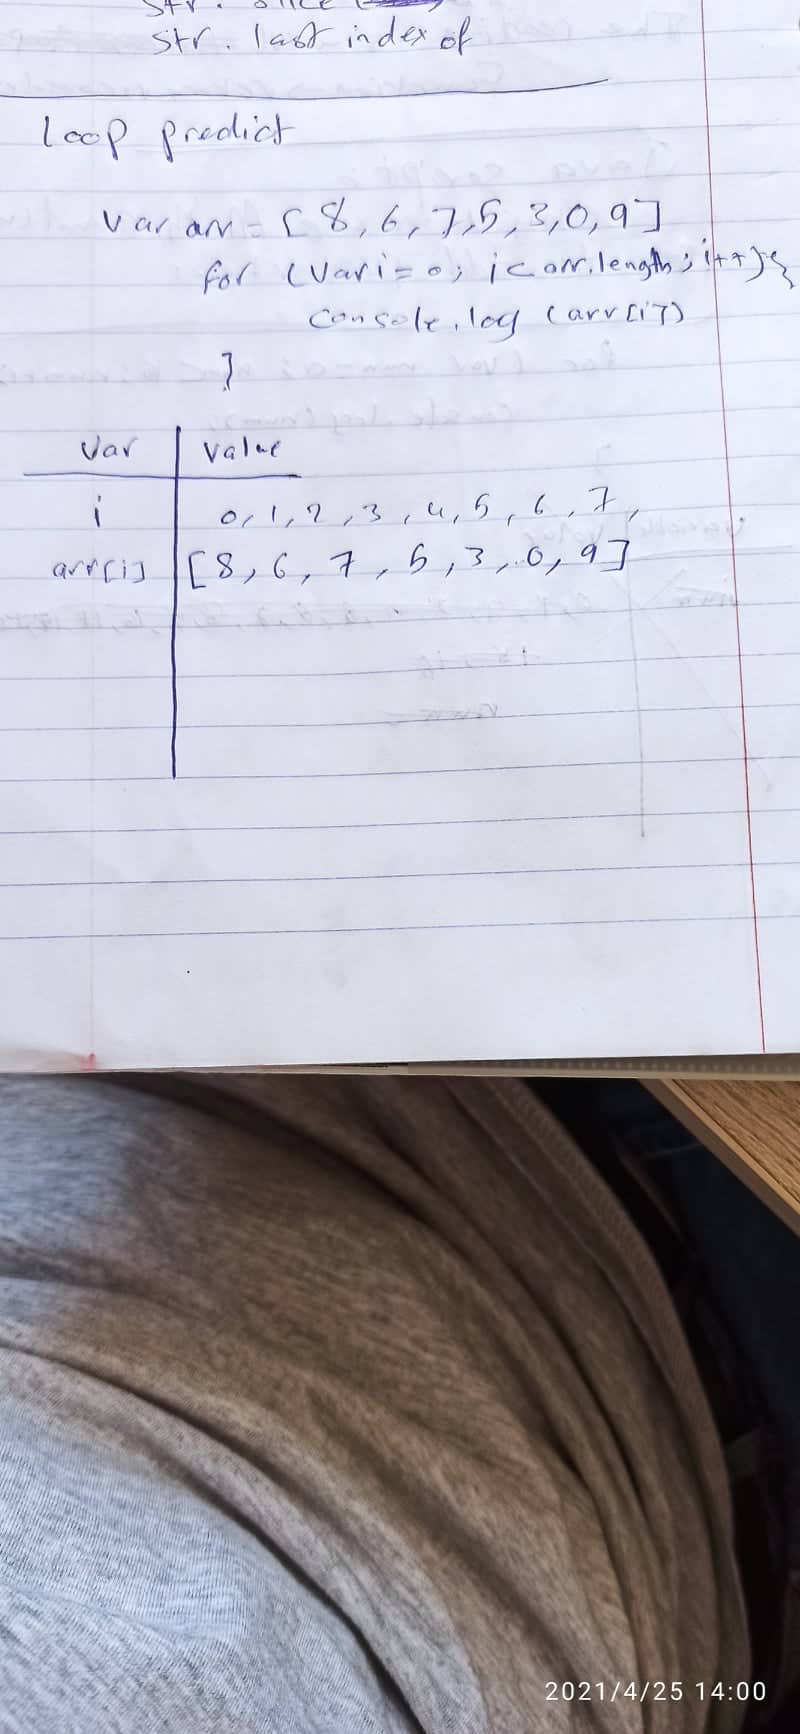 str. slice (
str. last index of
Loop predict
var arr = [8, 6, 7, 5, 3, 0, 9]
for (var i = 0; i < arr.length; i++) {
console.log (arr[i])
}
var value
i 0, 1, 2, 3, 4, 5, 6, 7,
arr[i] [8, 6, 7, 5, 3, 0, 9]
2021/4/25 14:00